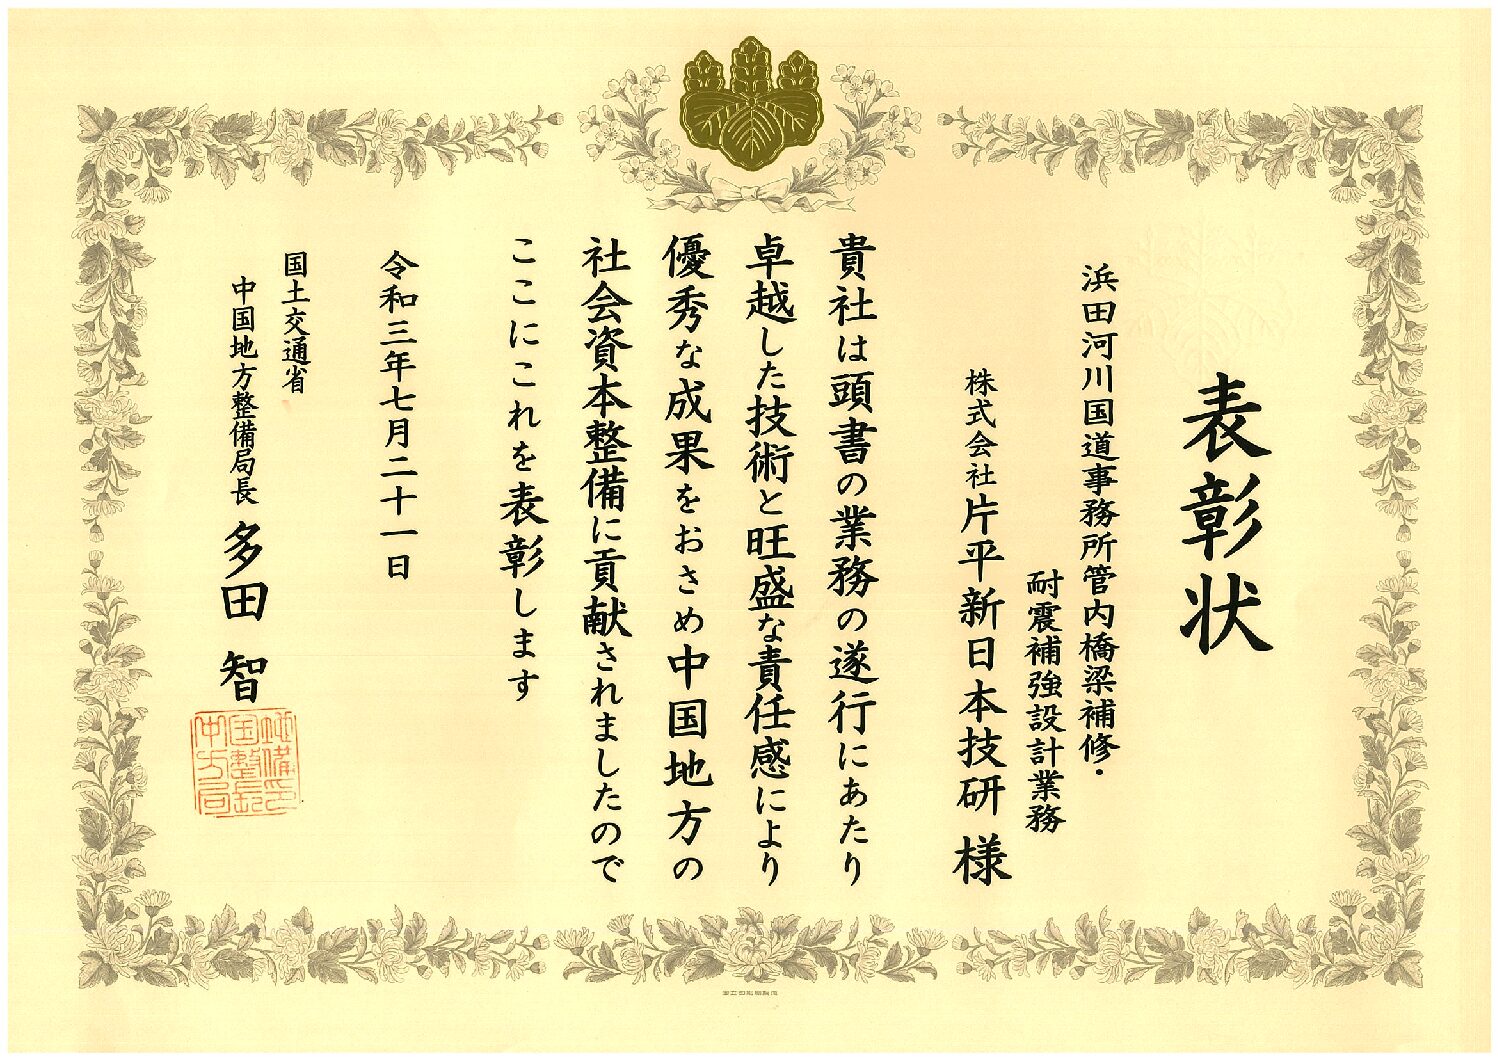 表彰状
浜田河川国道事務所管内橋梁補修・
耐震補強設計業務
株式会社片平新日本技研 様
貴社は頭書の業務の遂行にあたり
卓越した技術と旺盛な責任感により
優秀な成果をおさめ中国地方の
社会資本整備に貢献されましたので
ここにこれを表彰します
令和三年七月二十一日
国土交通省
中国地方整備局長 多田 智